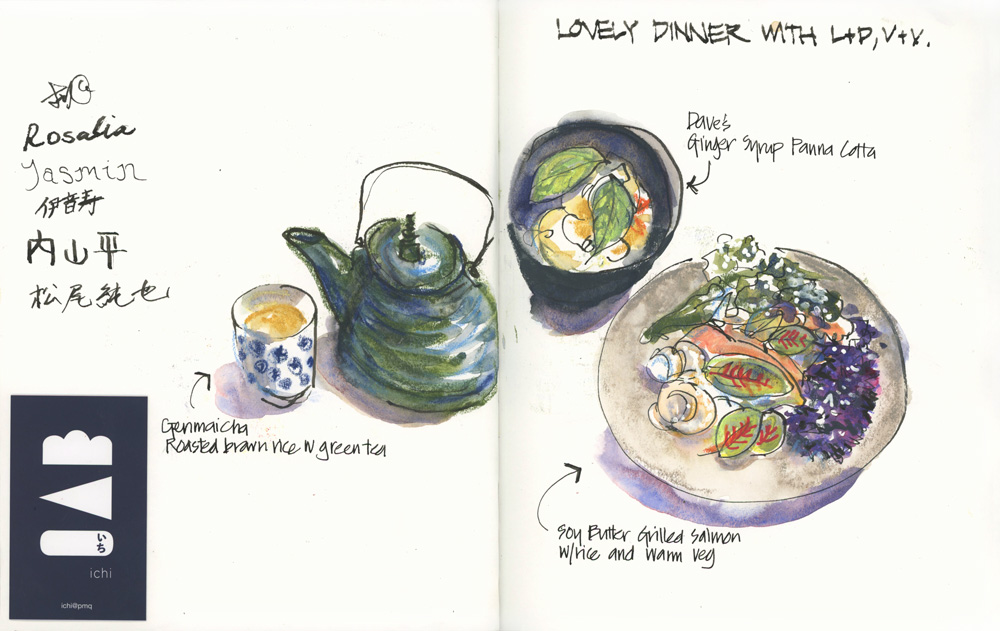 Rosalia
Yasmin
伊音寿
内山平
松尾純也
いち
ichi
ichi@pmq
Genmaicha
Roasted brown rice w green tea
LOVELY DINNER WITH L+D, V+V.
Dave's
Ginger Syrup Panna Cotta
Soy Butter Grilled Salmon
w/rice and warm veg